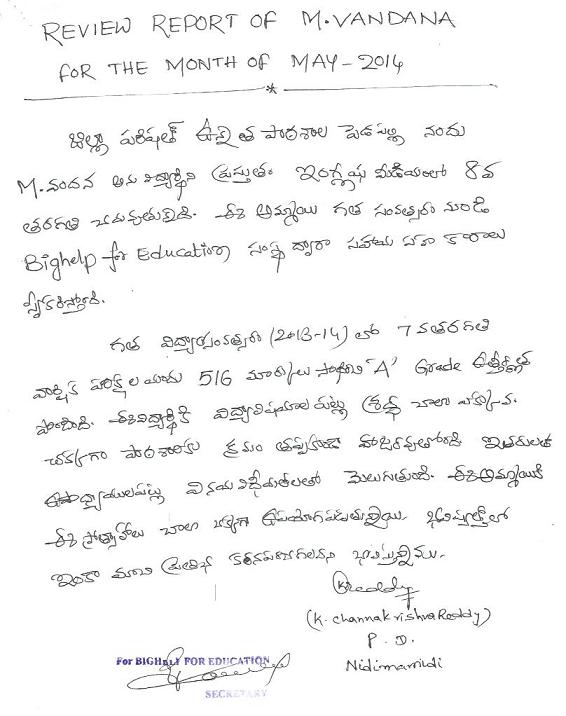 REVIEW REPORT OF M.VANDANA
FOR THE MONTH OF MAY-2014
జిల్లా పరిషత్ ఉన్నత పాఠశాల పెడపల్లి నందు
M.వందన అను విద్యార్థిని ప్రస్తుతం ఇంగ్లీషు మీడియంలో 8వ
తరగతి చదువుతున్నది. ఈ అమ్మాయి గత సంవత్సరం నుండి
Bighelp for Education సంస్థ ద్వారా సహాయ
స్వీకరిస్తోంది.
గత విద్యాసంవత్సరం (2013-14) లో 7వతరగతి
వార్షిక పరీక్షల యందు 516 మార్కులు సాధించి "A" Grade ఉత్తీర్ణత
పొందింది. ఈవిద్యార్థికి విద్యావిషయాలపట్ల శ్రద్ధ చాలా ఎక్కువ.
చక్కగా పాఠశాలకు క్రమం తప్పకుండా హాజరవుతోంది ఇతరులతో
ఉపాధ్యాయులపట్ల వినయ విధేయతలతో మెలుగుతుంది. ఈఅమ్మాయికి
ఈ ప్రోత్సాహాలు చాలా చక్కగా ఉపయోగపడుతున్నాయి. భవిష్యత్తులో
ఇంకా మంచి ప్రతిభ కనపరచగలదని భావిస్తున్నాము.
KReddy
(K. channakrishvaReddy)
P. D.
Nidimamidi
For BIGHELP FOR EDUCATION
SECRETARY